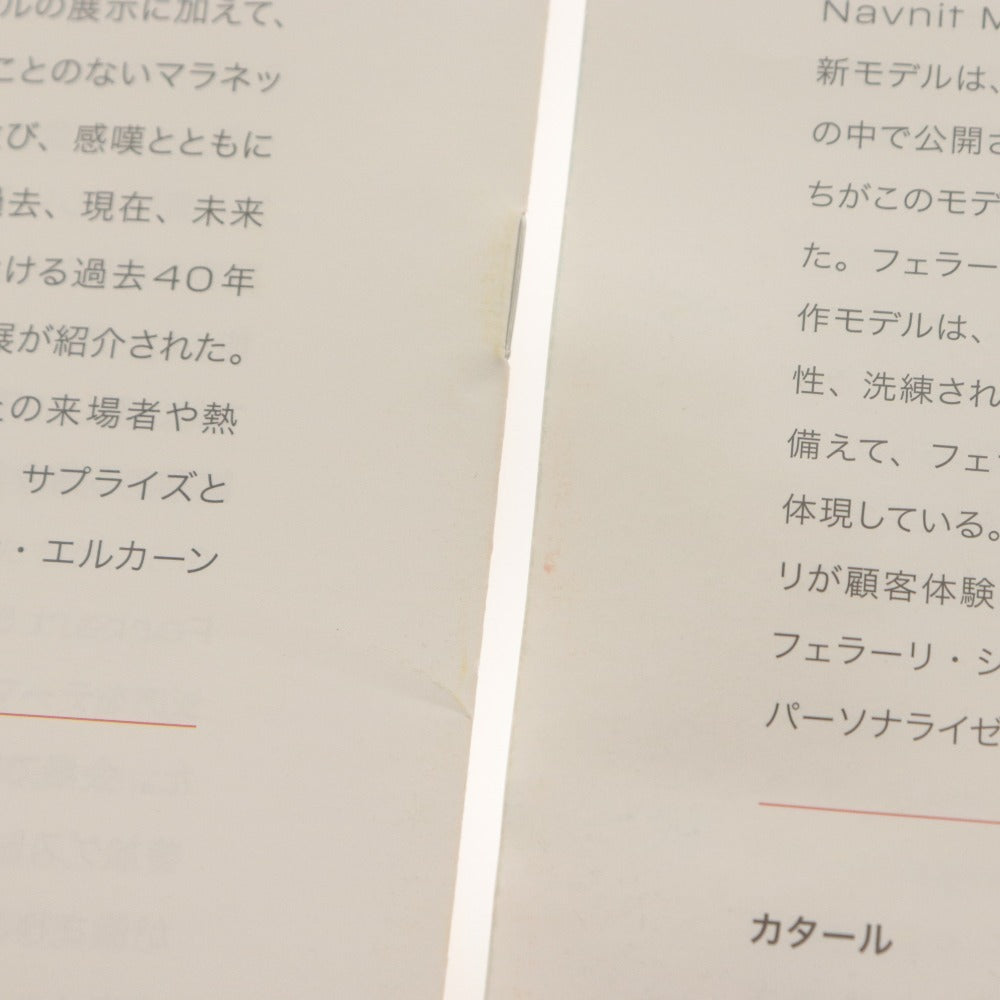 ルの展示に加えて、
ことのないマラネッ
び、感嘆とともに
去、現在、未来
ける過去40年
展が紹介された。
の来場者や熱
サプライズと
・エルカーン
Navnit M
新モデルは、
の中で公開さ
ちがこのモデ
た。フェラー
作モデルは、
性、洗練され
備えて、フェ
体現している。
リが顧客体験
フェラーリ・シ
パーソナライゼ
カタール